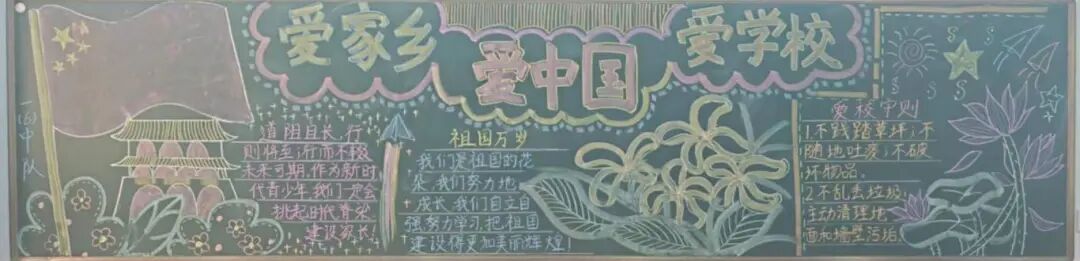 爱家乡
爱中国
爱学校
一四中队
道阻且长,行
则将至;行而不辍
未来可期,作为新时
代青少年,我们一定会
挑起时代脊梁
建设家长!
祖国万岁
我们是祖国的花
朵,我们努力地
成长,我们自立自
强努力学习,把祖国
建设得更加美丽辉煌!
爱校守则
1.不践踏草坪;不
随地吐痰;不破
坏物品。
2.不乱丢垃圾
主动清理地
面和墙壁污垢。